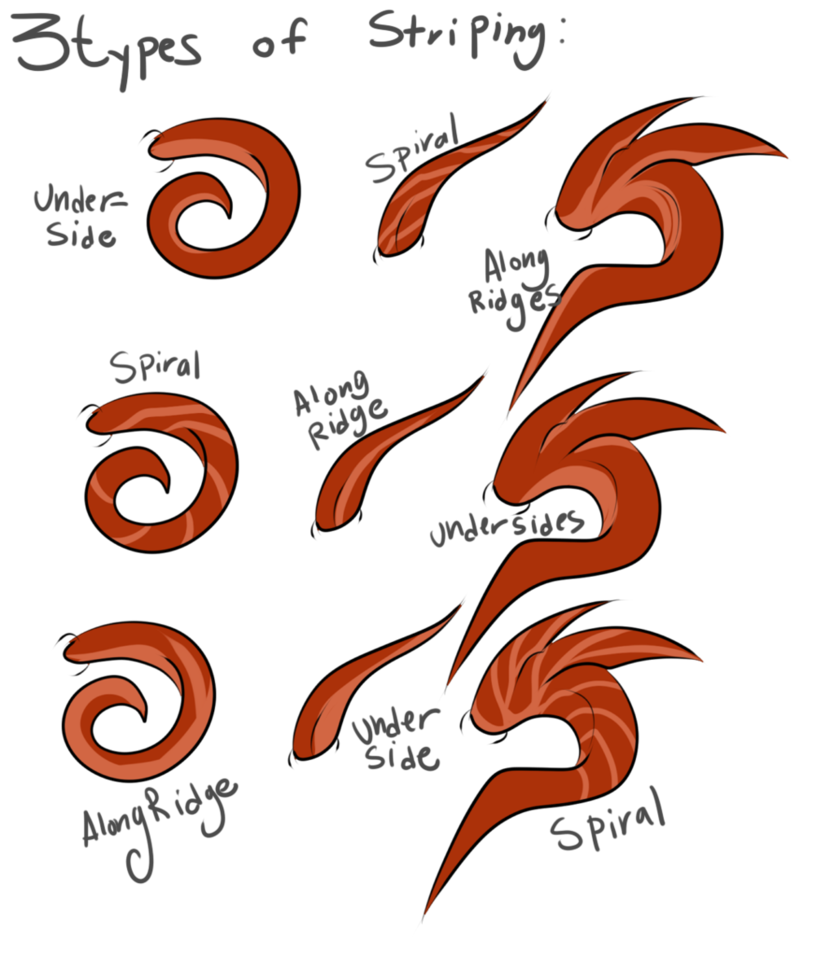 3 types of Striping:
Under-
Side
Spiral
Along
Ridges
Spiral
Along
Ridge
undersides
Along Ridge
Under
Side
Spiral